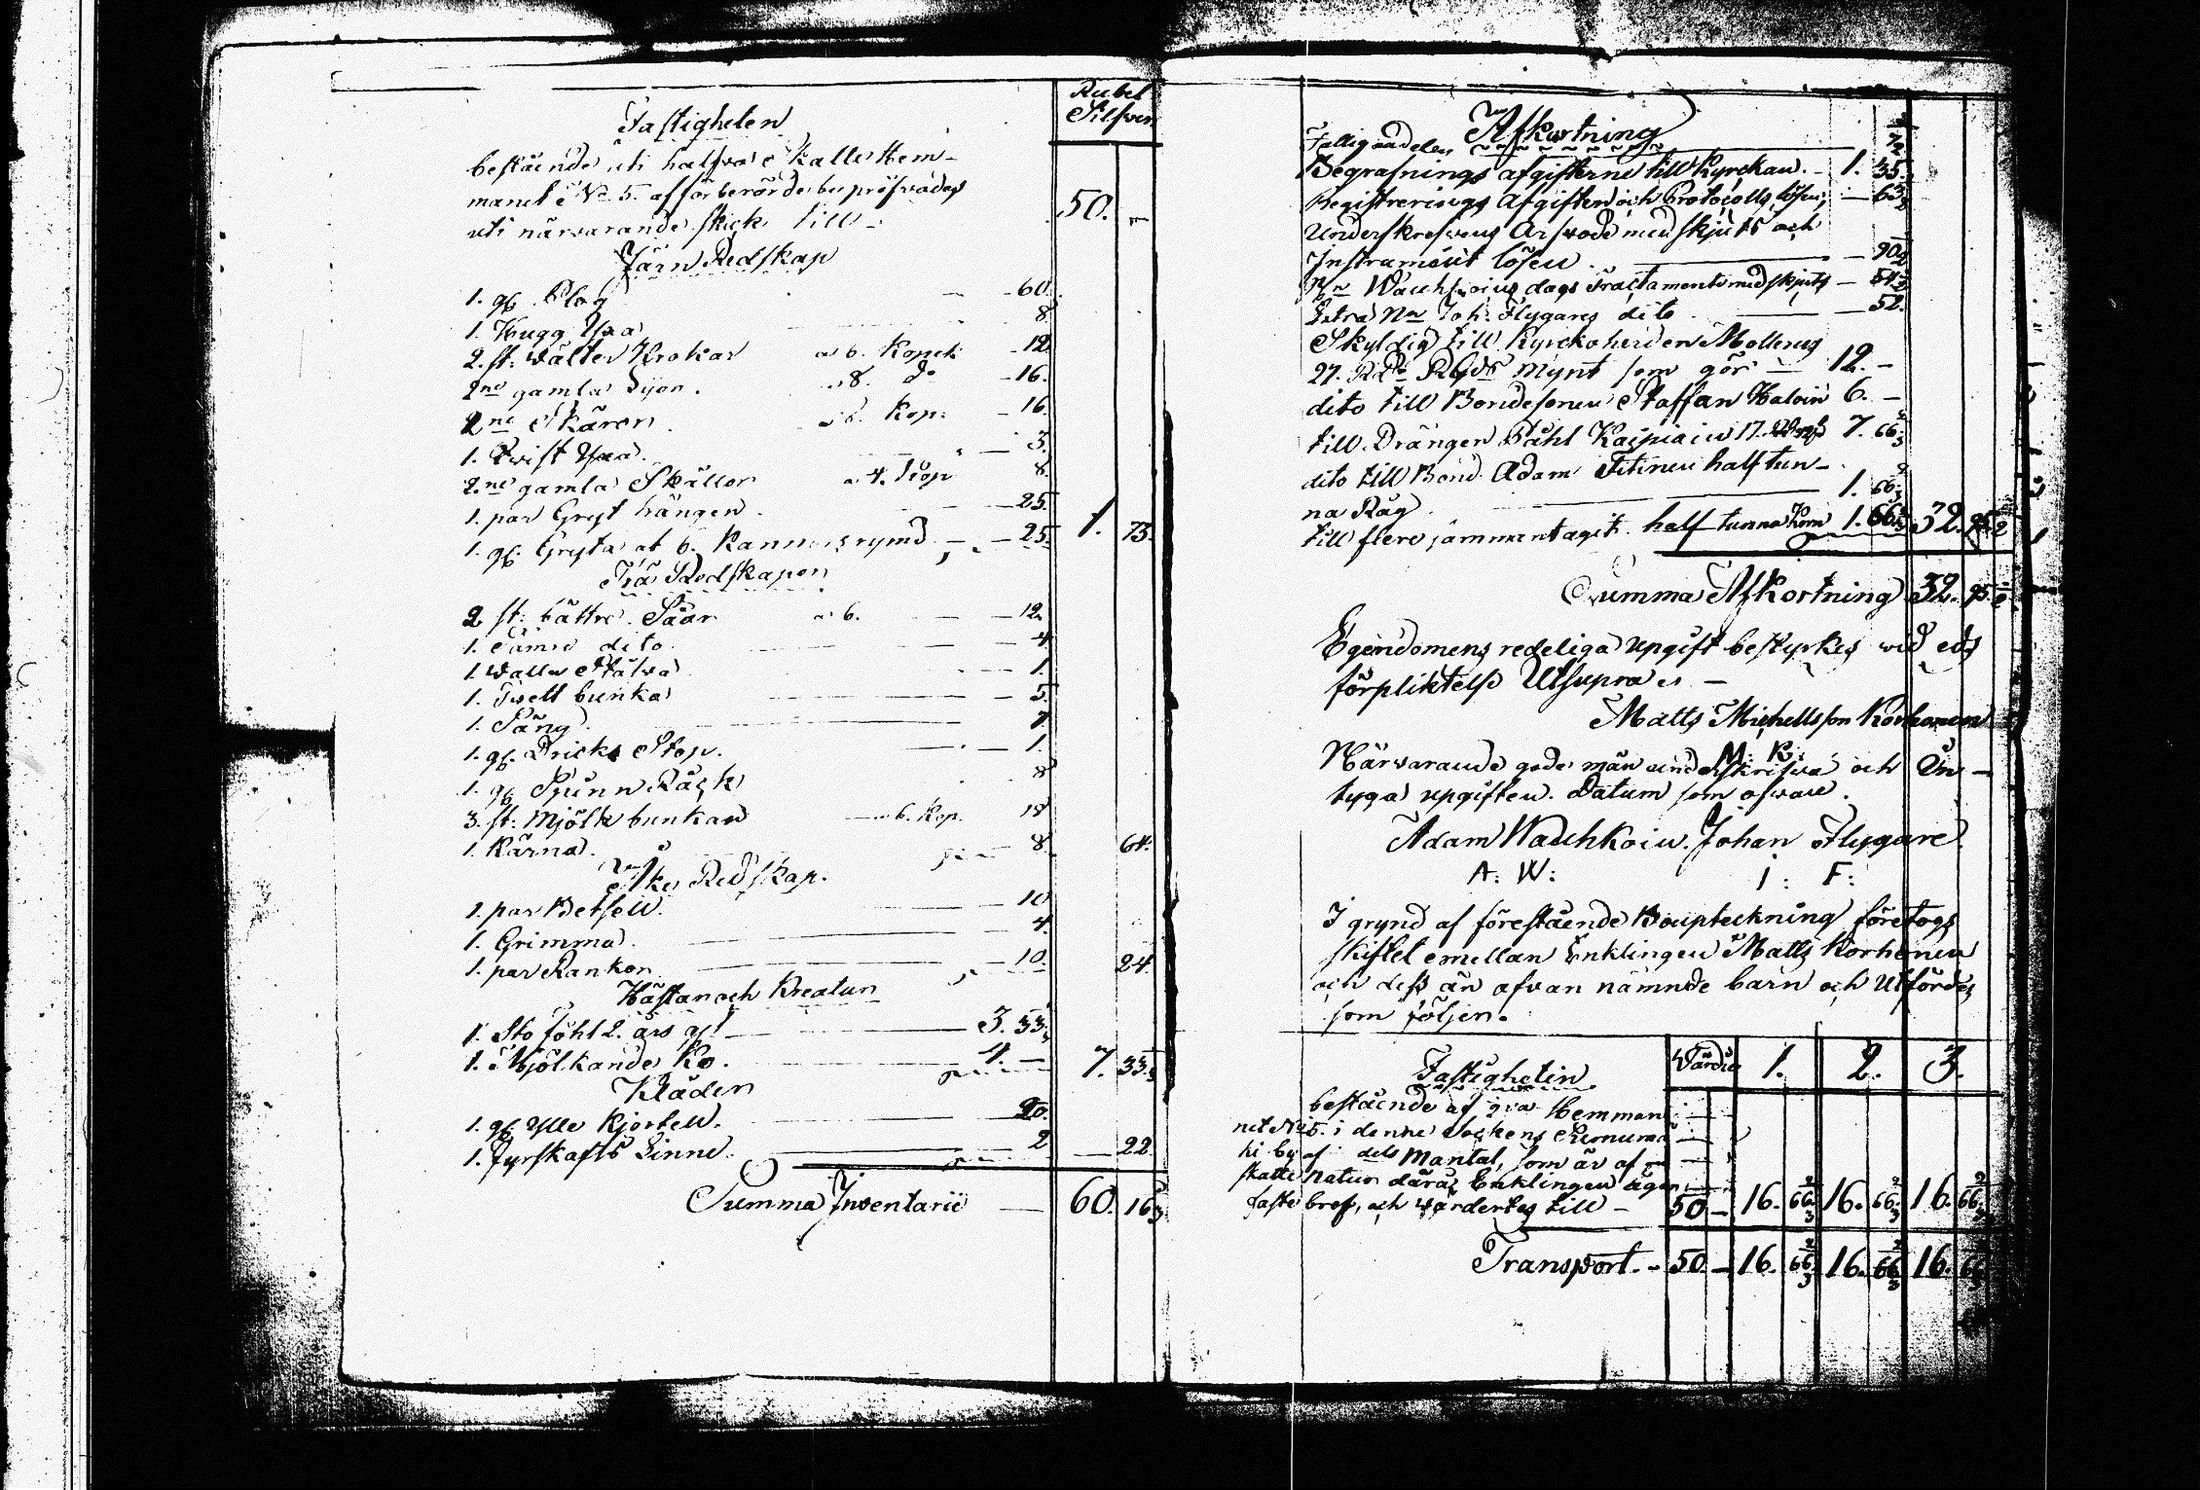 Rubel
Silfver
Fastigheten
bestående uti halfva Skatte Hem-
manet N° 5. af förberörde by pröfvades
uti närvarande skick till - 50. -
Järn Redskap
1. gl. Plog - 60.
1. Hugg Yxa 8
2. st: Wälter Krokar a 6. Kopek 12
2ne gamla Lijor. a 8. do - 16.
2ne Skäror a 8. Kop: - 16
1. Qwist Yxa. - 3.
2ne gamla Skällor a 4. Kop 8.
1. par Gryt hängen. - 25.
1. gl. Gryta af 6. Kannors rymd - 25. 1. 73.
Trä Redskaper
2 st: bättre Såar a 6. - 12.
1. Sämre dito - 4
1. Watten Stäfva - 1.
1. Twett bunka - 5.
1. Säng. - 1
1. gl. Dricks Stop. - 1.
1. gl. Spinn Råck 8
3. st: Mjölk bunkar - 6. Kop. 18
1. Kärna. - 8. 64.
Åke Redskap.
1. par Betsell. - 10
1. Grimma. - 4.
1. par Rankor - 10. 24.
Hästar och Kreatur
1. Sto föhl 2. års gl. - 3. 33
1. Mjölkande Ko. - 4. - 7. 33
Kläder
1. gl. Ylle Kjortell. - 20.
1. Fyrskafts Linne. - 2 - 22.
Summa Inventarii - 60. 16
Afkortning
Fattigandelen 7
Begrafnings afgifterne till Kyrckan. - 1. 35.
Registrerings Afgiften och Protocolls lösen; - 63
Underskrefvens Arfvode med skjuts och
Instrument lösen - 90
Nn Wauhkoins dags Tractamente med skjuts - 54
Extra Nn Joh: Flygares dito - 52.
Skyldig till Kyrckoherden Mollerus
27. Rd Rgds Mynt som gör - 12. -
dito till Bondesonen Staffan Haloin 6. -
till Drängen Påhl Kaipiain 17. 7. 66 2/3
dito till Bond. Adam Titinen half tun-
na Råg - 1. 66 2/3
till flere jämmantagit. half tunna Korn 1. 66 2/3 32. 95
Summa Afkortning 32. 95
Egendomens redeliga upgift bestyrkes wid eds
förpliktelse Utsupra -
Matts Michellsson Korhonen
M: K:
Närvarande gode män underskrifva och In-
tyga upgiften. Datum som ofvan.
Adam Wauhkoin. Johan Flygare
A: W: I: F:
I grund af förestående Bouptekning företogs
skiftet emellan Enklingen Matts Korhonen
och dess än ofvan nämnde barn och Utfördes
som följer.
Fastigheten Värdie 1. 2. 3.
bestående af Hemman
net N° 5. i denne Sockens
ki by af dels Mantal, som är af
skatte natur därå Enklingen äger
faste bref, och värdertes till - 50 - 16. 66 2/3 16. 66 2/3 16. 66 2/3
Transport. - 50. - 16. 66 2/3 16. 66 2/3 16. 66 2/3